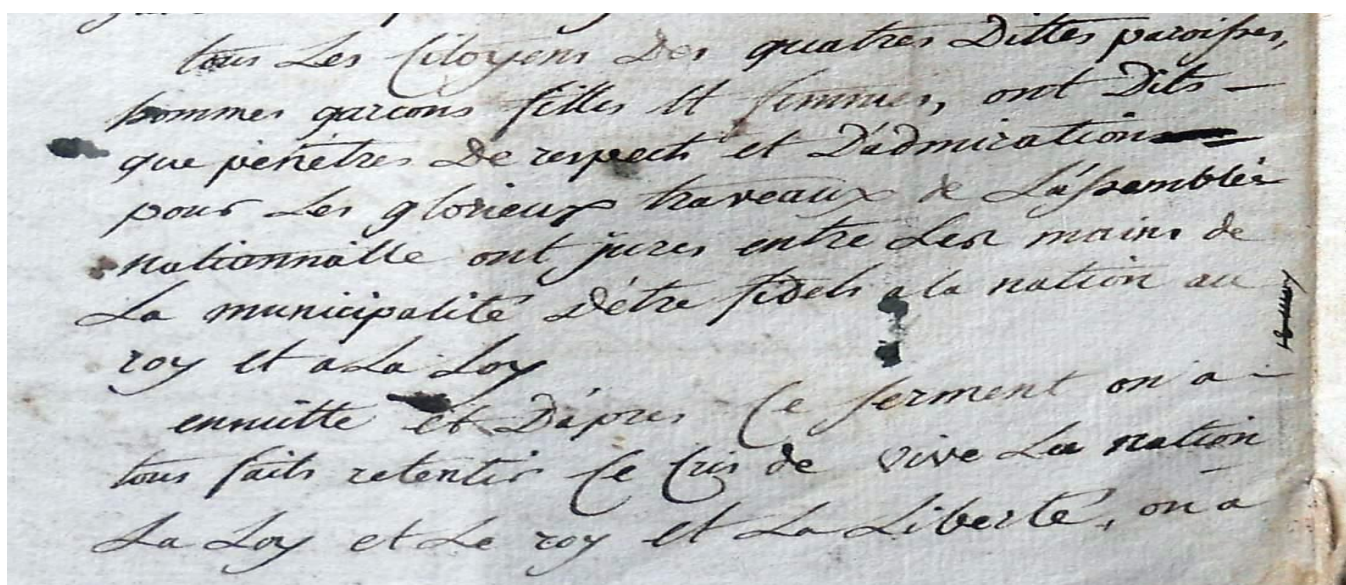 tous Les Citoyens Des quatres Dittes paroisses,
hommes garcons filles Et femmes, ont Dits -
que pénétres De respects et D'admirations
pour Les glorieux traveaux de L'assemblée
nationnalle ont jures entre Les mains de
La municipalité D'étre fidels a la nation au
roy Et a La Loy
ensuitte et D'apres Ce serment on a -
tous faits retentir Ce Cris de vive La nation
La Loy et Le roy Et La Liberté, on a